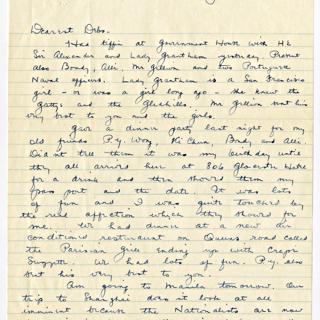 Dearest Debs.
Had tiffin at Government House with HE
Sir Alexander and Lady Grantham yesterday. Present
also Brady, Alli, Mr Gillion and two Portuguese
Naval officers. Lady Grantham is a San Francisco
girl - or was a girl long ago - she knew the
and the Gluskills. Mr Gillion sent his
very best to you and the girls.
Gave a dinner party last night for my
old friends P.y. Wong, Ki Chun, Brady and Alli.
Did not tell them it was my birthday until
they all arrived here at 806 Gloucester Hotel
for a drink and then showed them my
pass port and the date. It was lots
of fun and I was quite touched by
the real affection which they showed for
me. We had dinner at a new air
conditioned restaurant on Queens road called
the Parisian Grill ending up with Crepe
Suzette. We had lots of fun. P.y. also
sent his very best to you.
Am going to Manila tomorrow. Our
trip to Shanghai doesn't look at all
imminent because the Nationalists are now